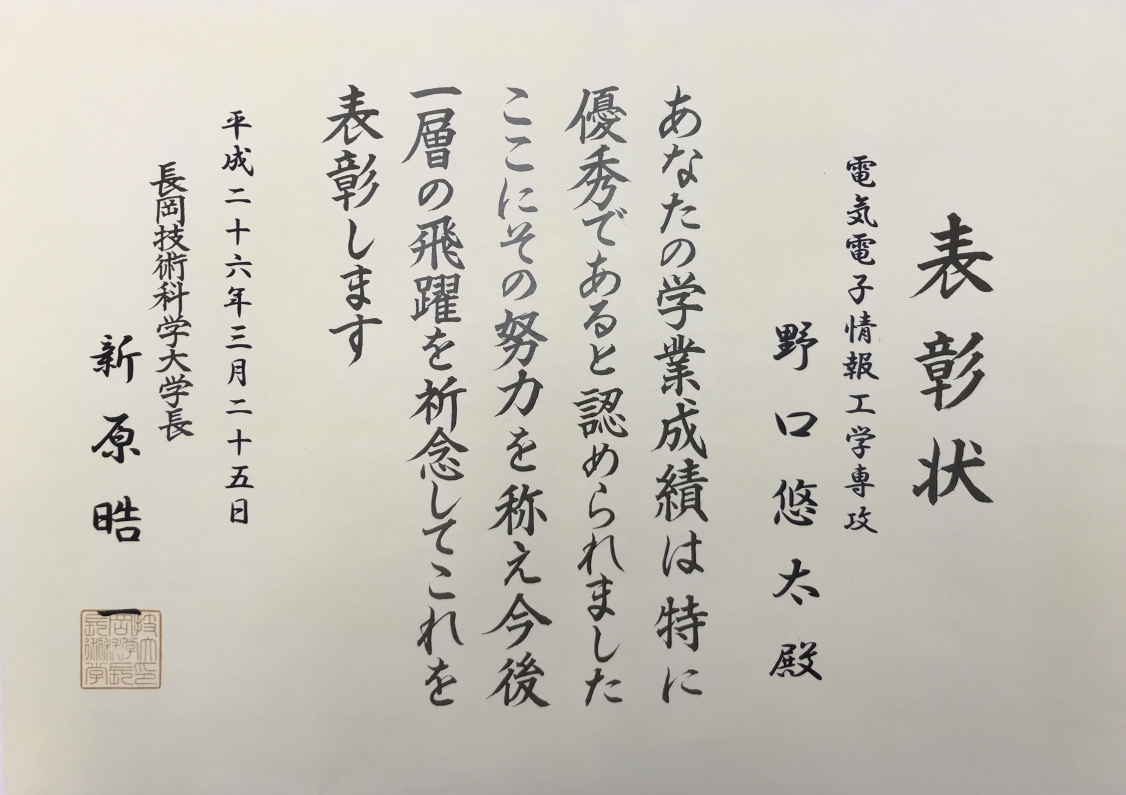 表彰状
電気電子情報工学専攻
野口悠太殿
あなたの学業成績は特に
優秀であると認められました
ここにその努力を称え今後
一層の飛躍を祈念してこれを
表彰します
平成二十六年三月二十五日
長岡技術科学大学長
新原晧一